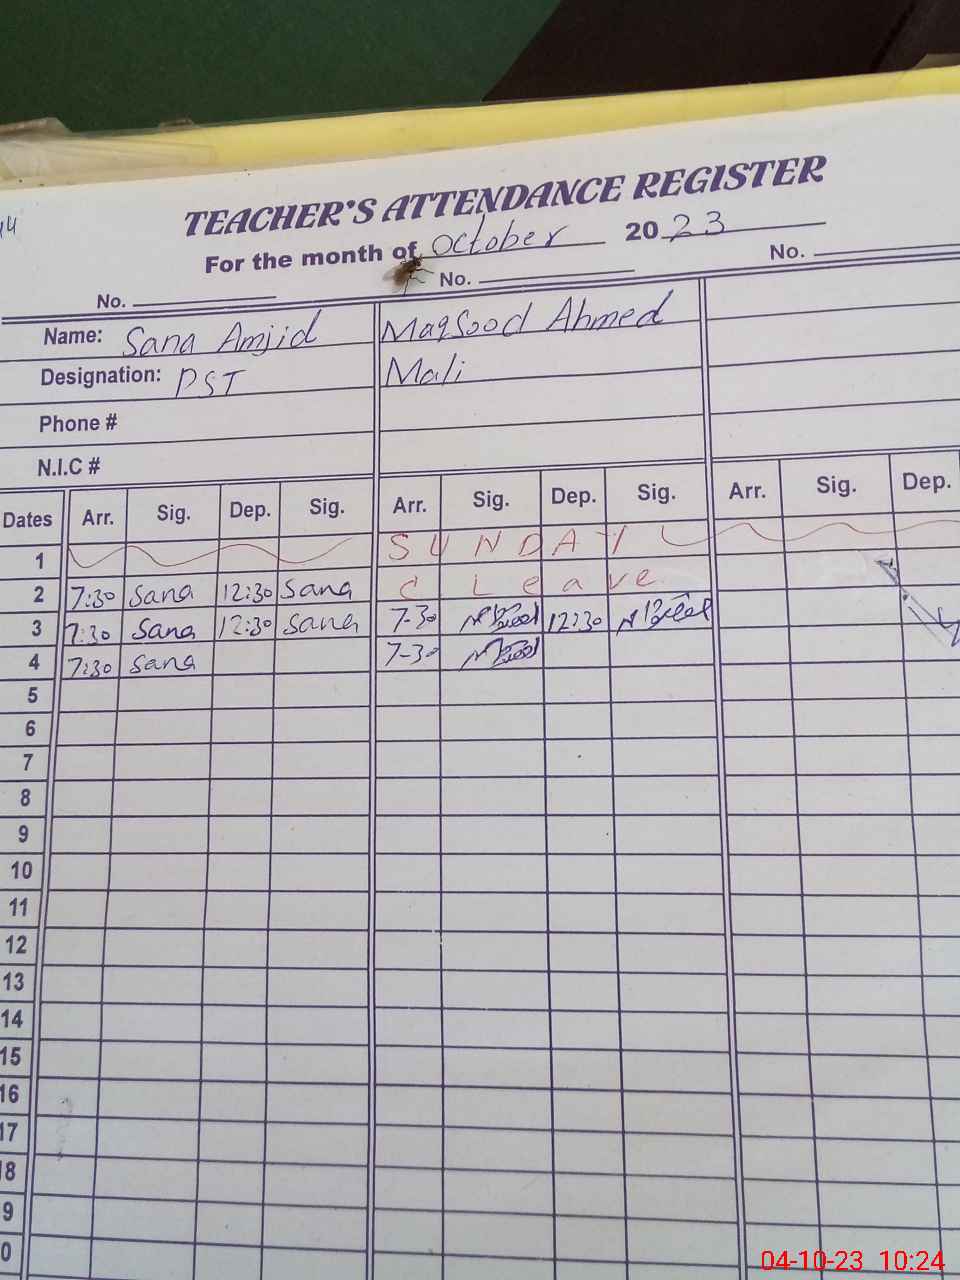 14
TEACHER'S ATTENDANCE REGISTER
For the month of October 2023
No. No. No.
Name: Sana Amjid Maqsood Ahmed
Designation: PST Mali
Phone #
N.I.C #
Dates Arr. Sig. Dep. Sig. Arr. Sig. Dep. Sig. Arr. Sig. Dep.
1 SUNDAY
2 7:30 Sana 12:30 Sana C Leave
3 7:30 Sana 12:30 Sana 7-30 12:30
4 7:30 Sana 7-30
5
6
7
8
9
10
11
12
13
14
15
16
17
18
9
0
04-10-23 10:24